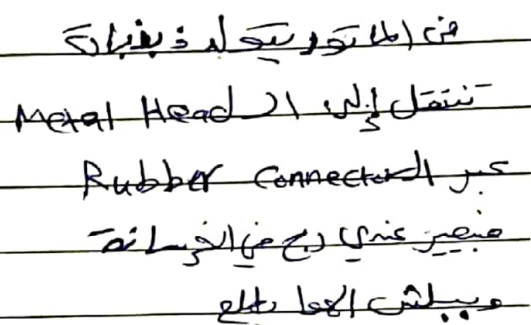 في الماتور يتولد ذبذبات
تنتقل إلى الـ Metal Head
عبر الـ Rubber Connector
فبصير عندي رج في الخرسانة
وببلش الهوا يطلع